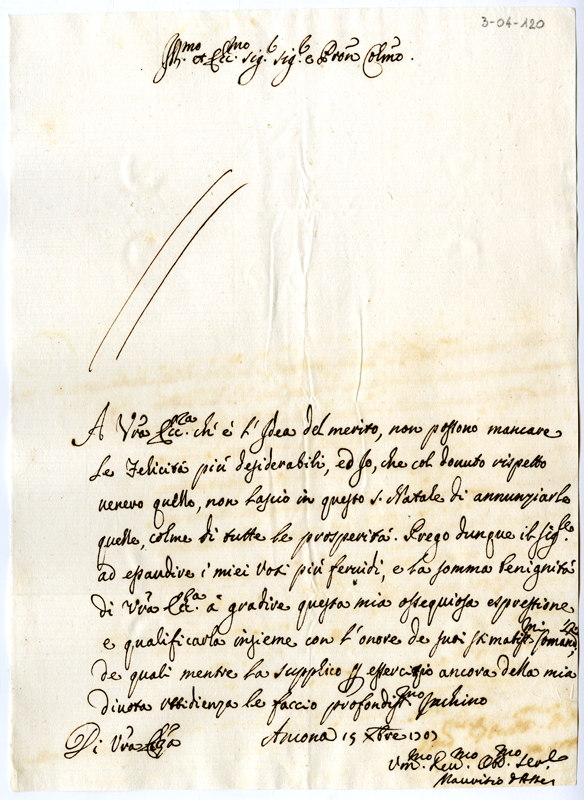 3-04-120
Ill.mo et Ecc.mo Sig.r Sig.r e Pron Colmo.
A Vra Ecc.za ch'é l'Idea del merito, non possono mancare
le Felicitá piú desiderabili, ed Io, che col douuto rispetto
venero quello, non lascio in questo S. Natale di annunziarle
quelle, colme di tutte le prosperitá. Prego dunque il Sig.re
ad esaudire i miei voti piú feruidi, e la somma benignitá
di Vra Ecc.za á gradire questa mia ossequiosa espressione
e qualificarla insieme con l'onore de suoi stimatiss.mi Comandi,
de quali mentre la supplico essercizio ancora della mia
diuota vbidienza le faccio profondiss.mo Inchino
Di Vra Ecc.za Ancona 15 Xbre 1707
Vm.mo Deu.mo Obb.mo Ser.e
Maurizio